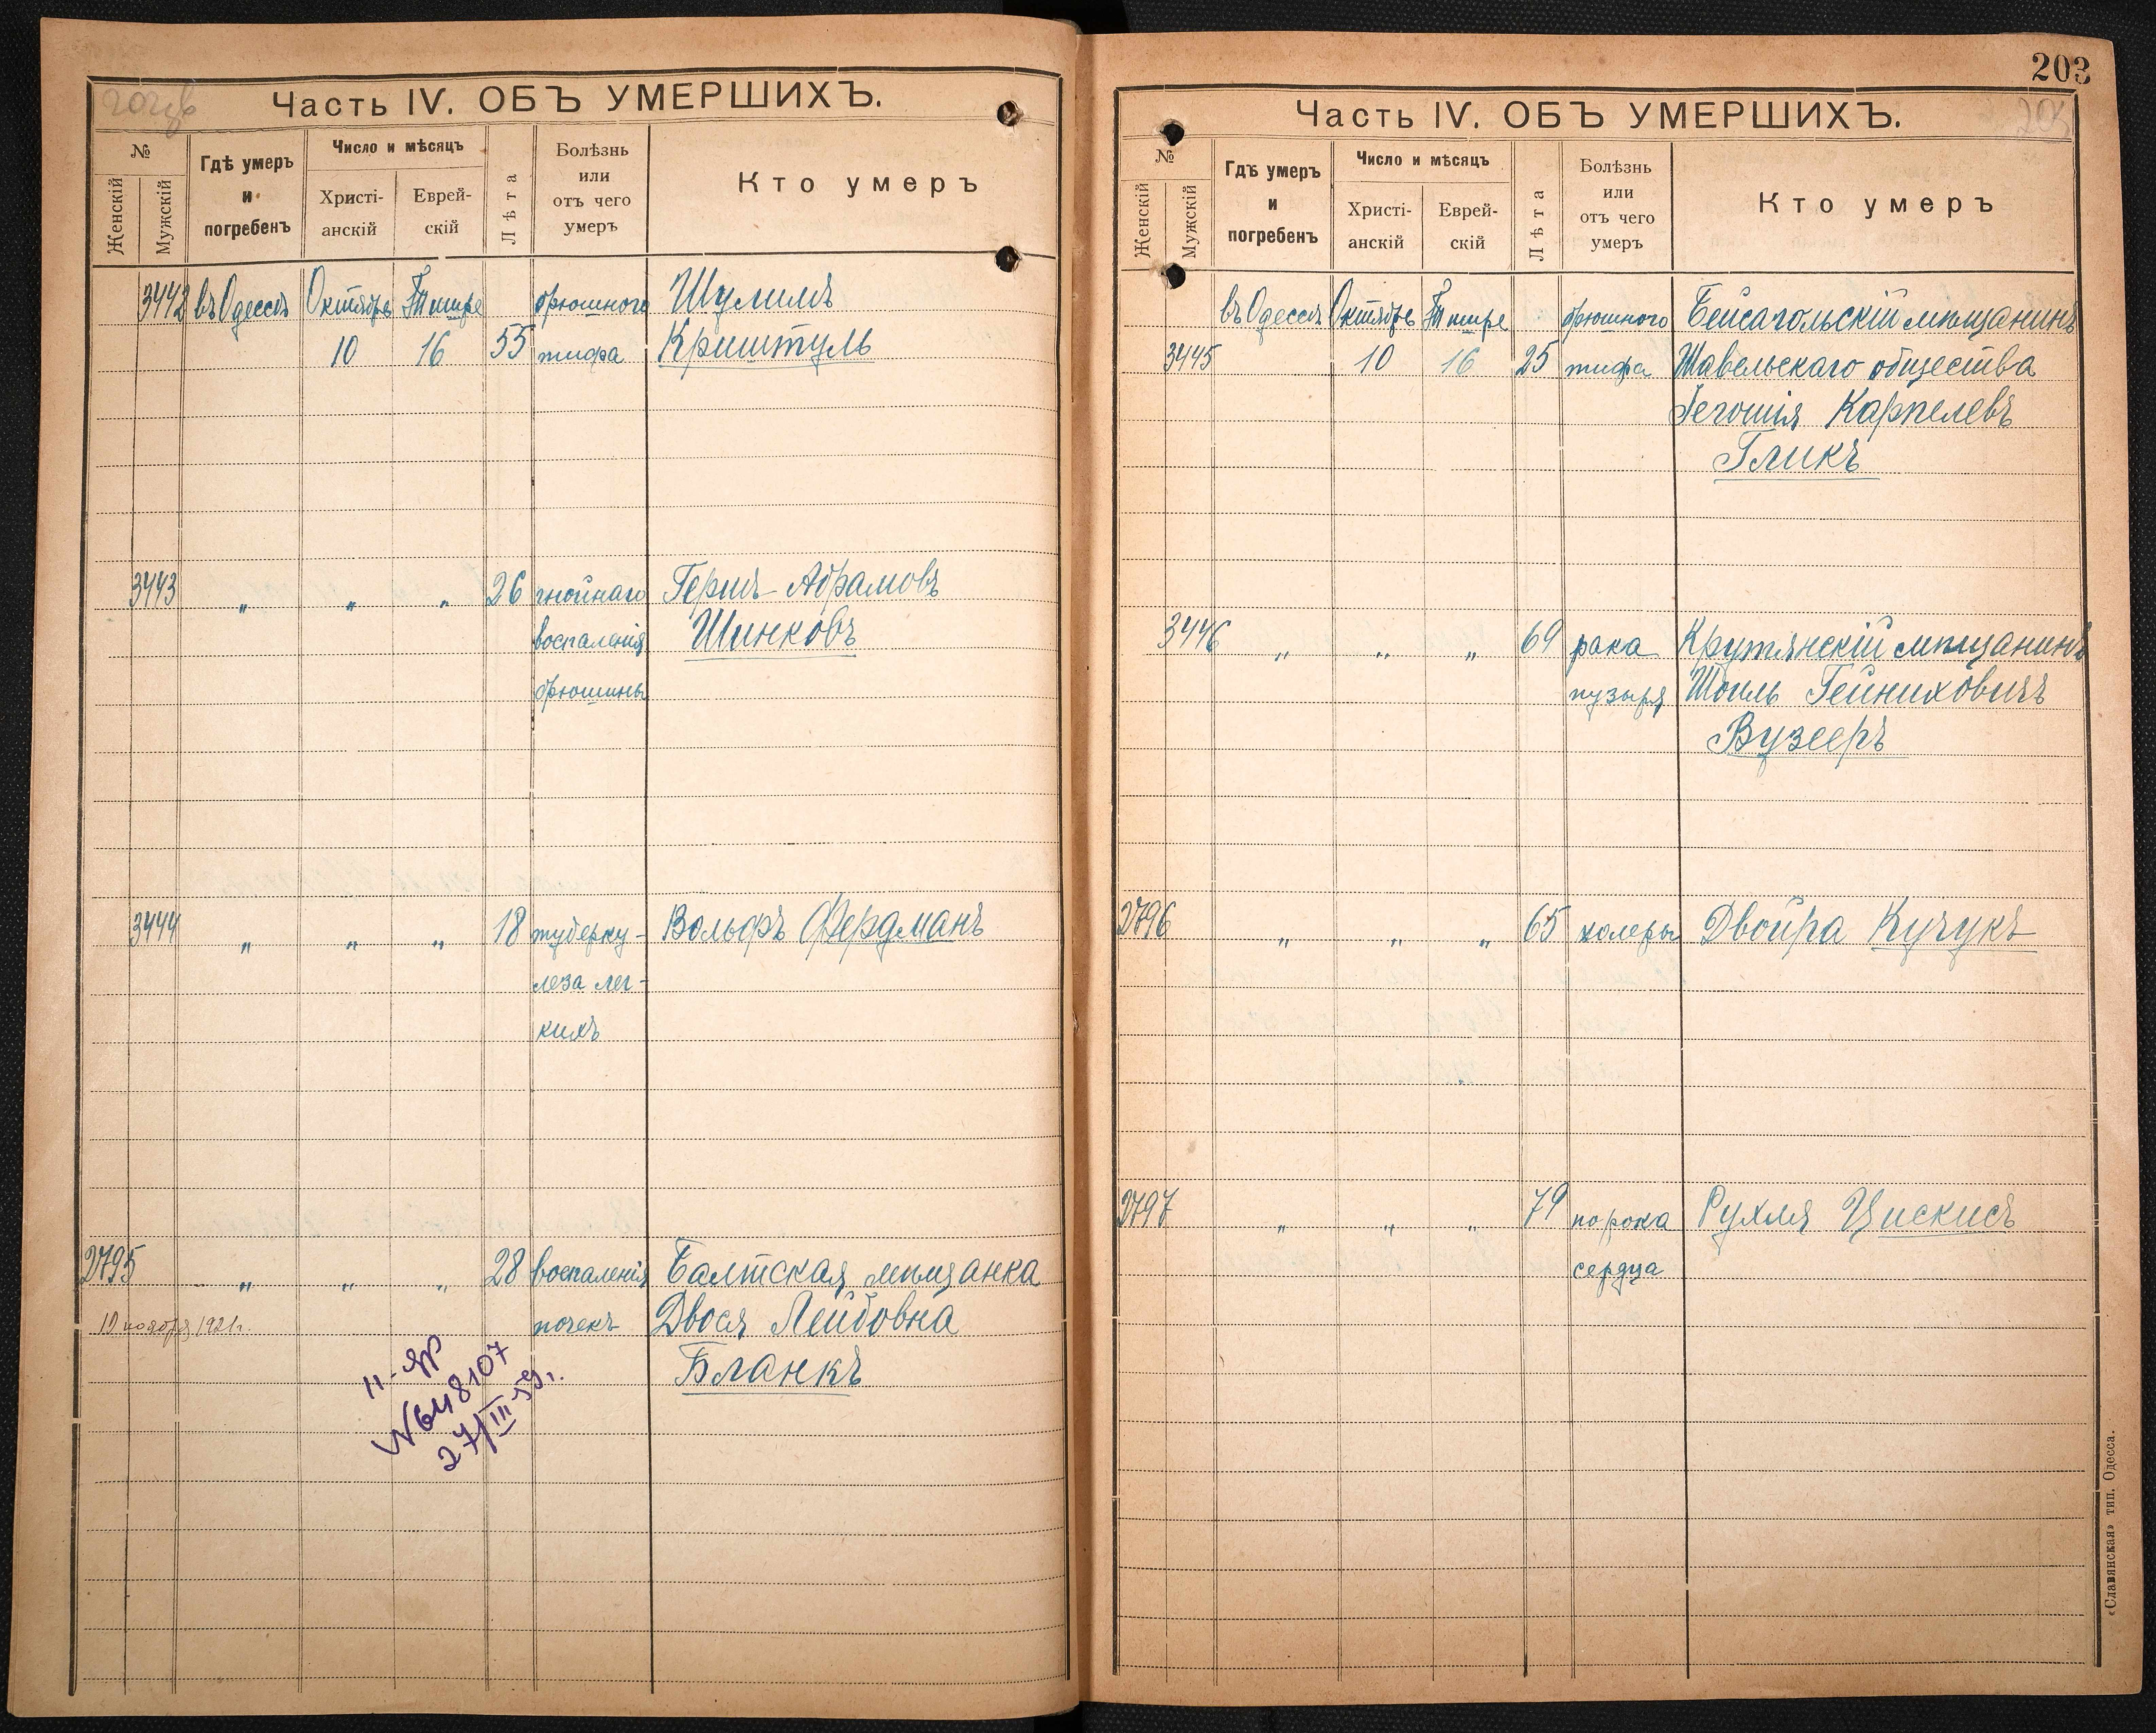 Часть IV. ОБЪ УМЕРШИХЪ.
№
Женскій
Мужскій
Гдѣ умеръ
и
погребенъ
Число и мѣсяцъ
Христі-
анскій
Еврей-
скій
Лѣта
Болѣзнь
или
отъ чего
умеръ
Кто умеръ
3442 въ Одессѣ Октябрь Тишре брюшного Шулимъ
10 16 55 тифа Криштуль
3443 " " " 26 гнойнаго Гершъ-Абрамовъ
воспаленія Шинковъ
брюшины
3444 " " " 18 туберку- Вольфъ Фердманъ
леза лег-
кихъ
2795 " " " 28 воспаленія Балтская мѣщанка
10 ноября 1921г. почекъ Двося Лейбовна
Бланкъ
№648107
27/III-59г.
203
Часть IV. ОБЪ УМЕРШИХЪ.
203
№
Женскій
Мужскій
Гдѣ умеръ
и
погребенъ
Число и мѣсяцъ
Христі-
анскій
Еврей-
скій
Лѣта
Болѣзнь
или
отъ чего
умеръ
Кто умеръ
въ Одессѣ Октябрь Тишре брюшного Бейсагольскій мѣщанинъ
3445 10 16 25 тифа Шавельскаго общества
Карпелевъ
Гликъ
3446 " " " 69 рака Крутянскій мѣщанинъ
пузыря Шоиль Гейниховичъ
Вузееръ
2796 " " " 65 холеры Двойра Кучукъ
2797 " " " 79 порока Рухля Цискисъ
сердца
«Славянская» тип. Одесса.